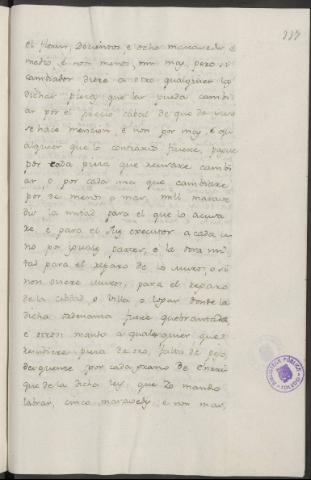 337
el florin, docientos e ocho maravedis e
medio, e non menos, nin mas, pero si
cambiador diere a otro qualquier las
dichas piezas, que las pueda cambi-
ar por el precio cabal de que de suso
se hace mencion, e non por mas, e qu
alquier que lo contrario ficiere, pague
por cada pieza que recusare cambi
ar, o por cada una que cambiare
por de menos o mas, mill marave
dis la mitad para el que lo acusa
re, e para el Juez executor a cada u
no por iguales partes, e la otra mi
tad para el reparo de los muros, o si
non oviere muros, para el reparo
de la cibdad, o Villa o Logar donde la
dicha ordenanza fuere quebrantada,
e otrosi mando a qualesquier que
rindiere pieza de oro, falta de peso,
descuenten por cada grano de
que de la dicha ley que Yo mando
labrar, cinco maravedis, e non mas,
BIBLIOTECA PÚBLICA
TOLEDO